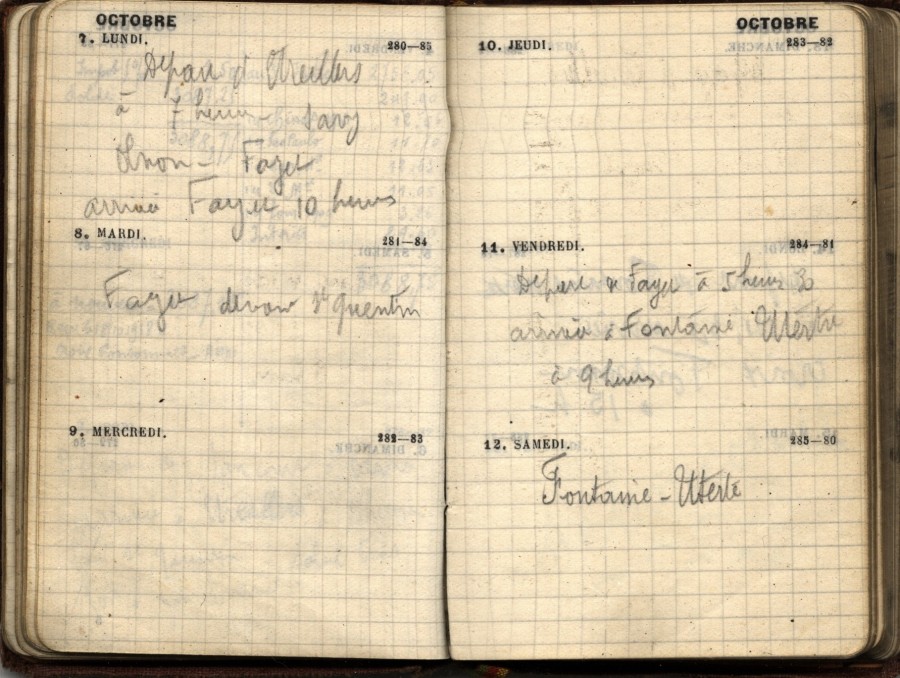 OCTOBRE
7. LUNDI. 280—85
Depart d' Etreillers
à 7 heures - Savy
- Fayet
arrivée Fayet 10 heures
8. MARDI. 281—84
Fayet devant St Quentin
9. MERCREDI. 282—83
OCTOBRE
10. JEUDI. 283—82
11. VENDREDI. 284—81
Depart de Fayet à 5 heures 30
arrivée à Fontaine Utertre
à 9 heures
12. SAMEDI. 285—80
Fontaine - Uterte